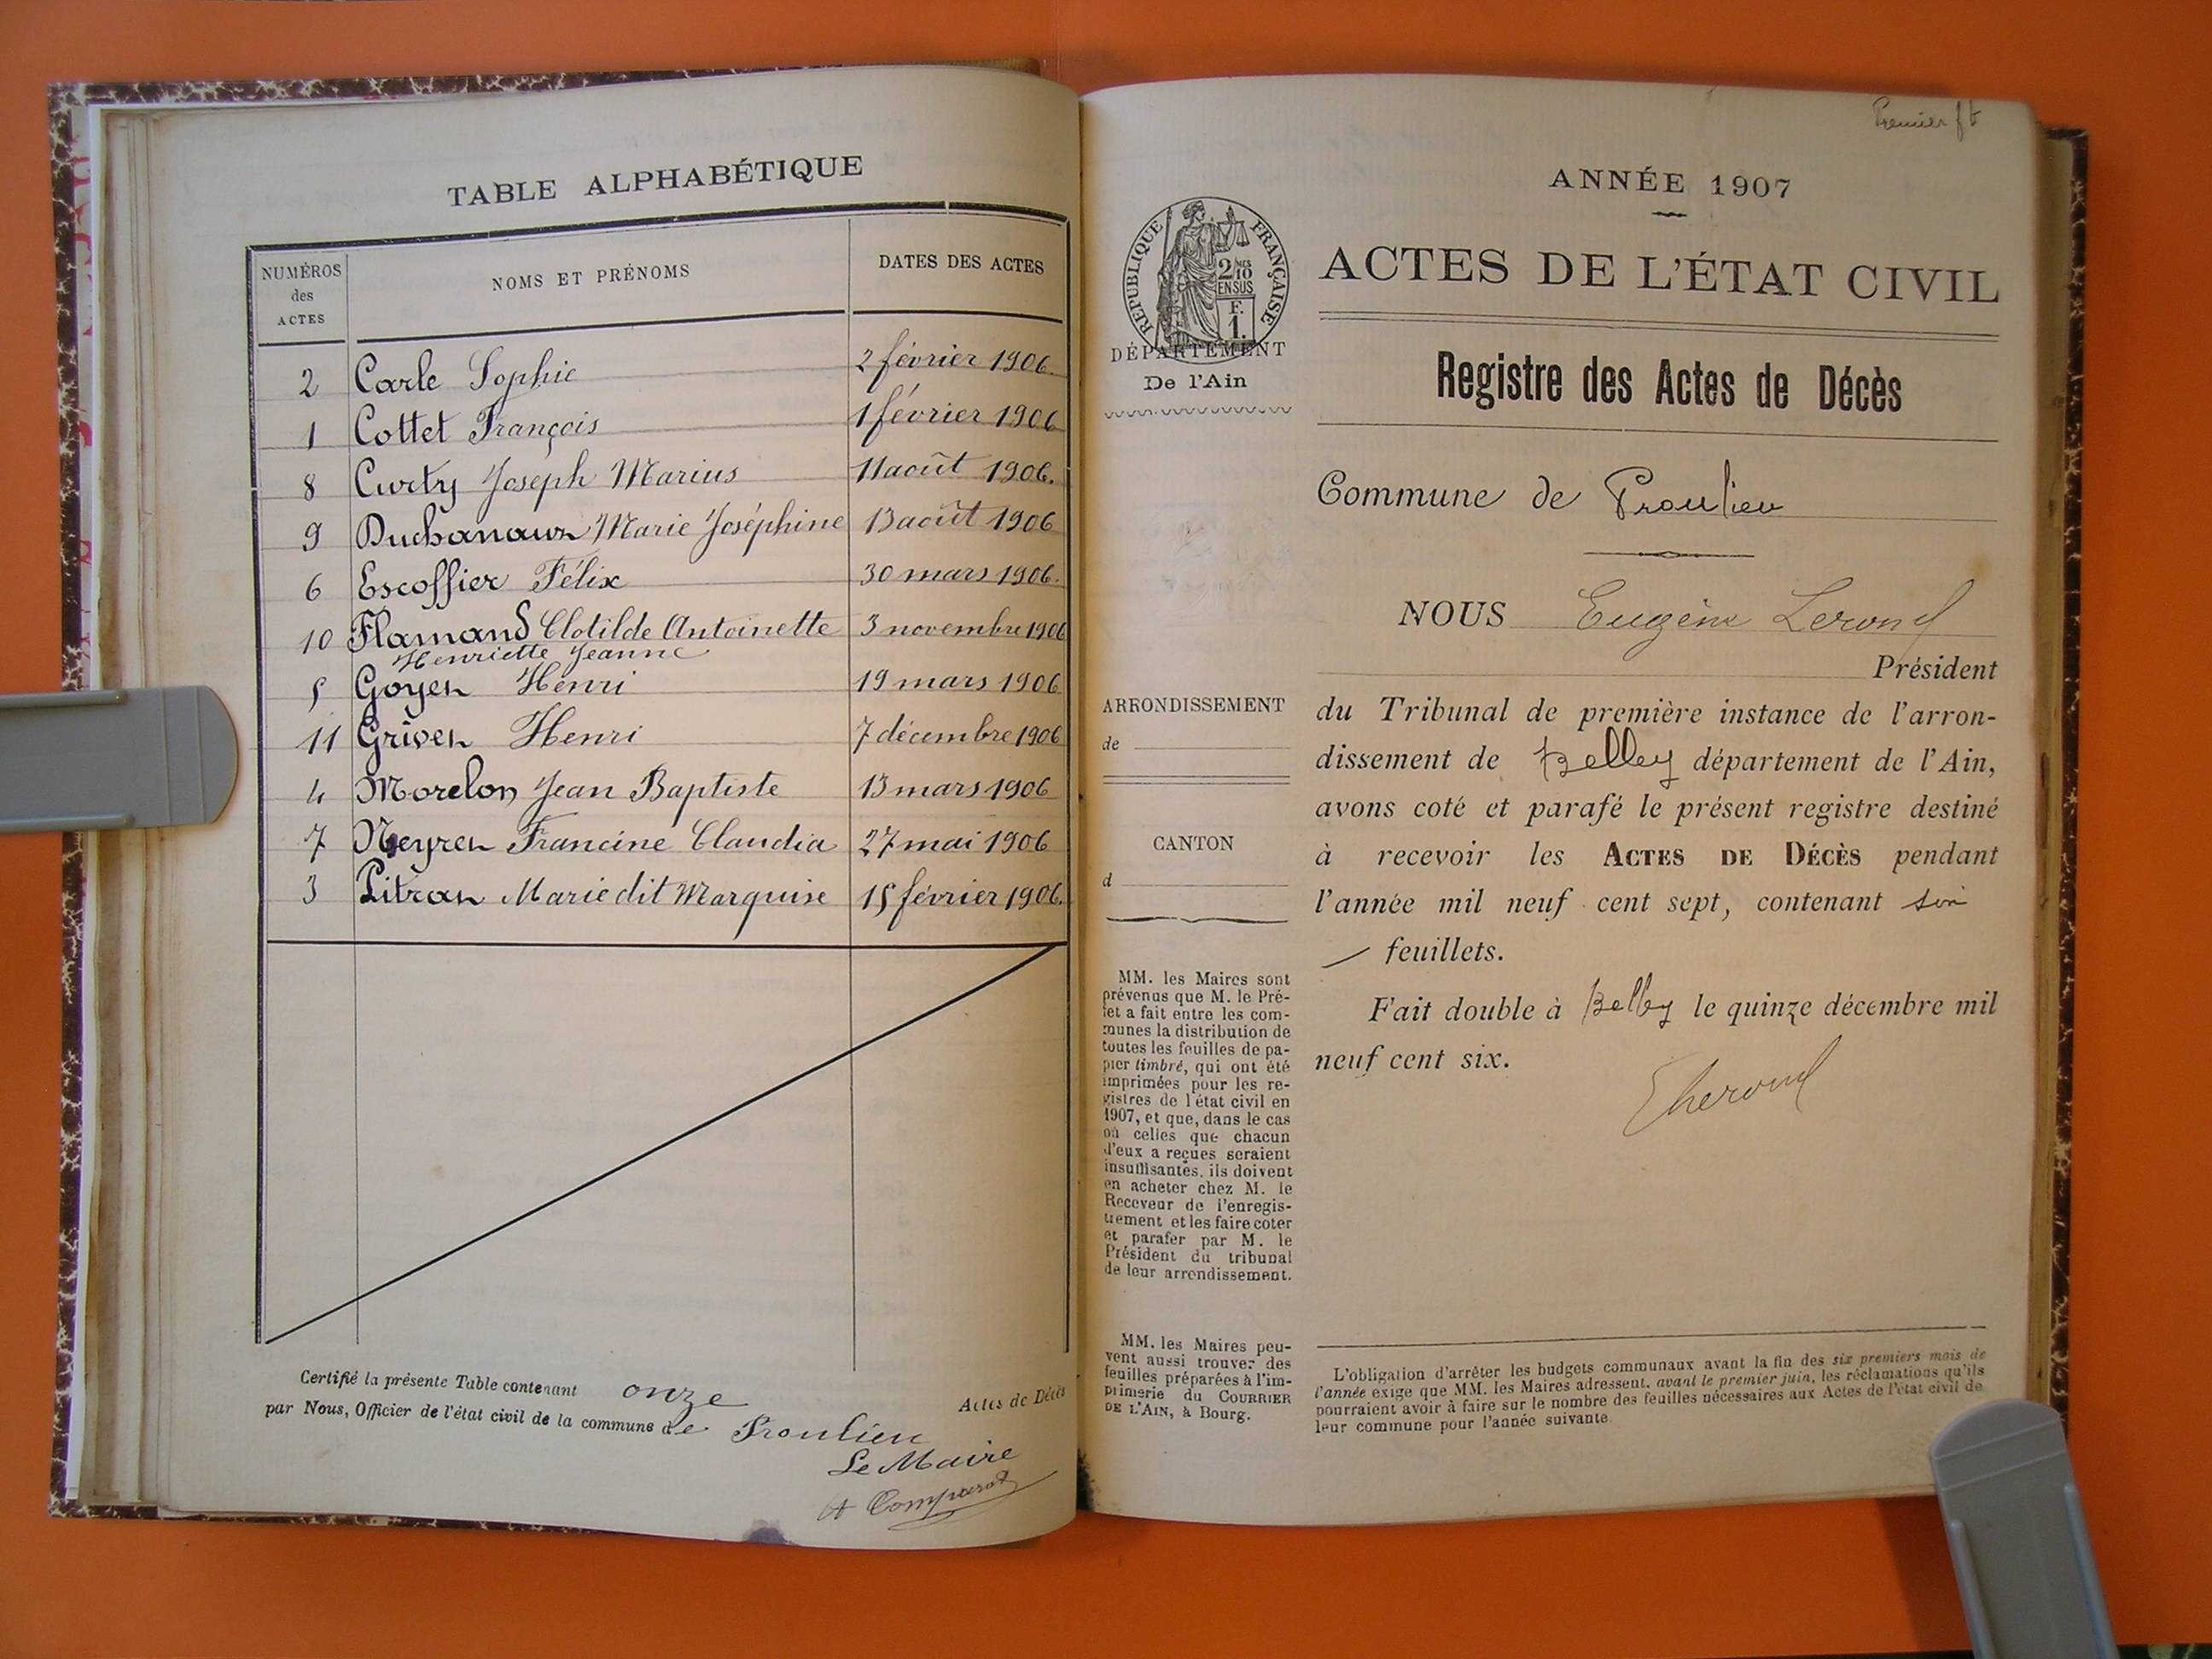 TABLE ALPHABÉTIQUE
NUMÉROS des ACTES NOMS ET PRÉNOMS DATES DES ACTES
2 Carle Sophie 2 février 1906.
1 Cottet François 1 février 1906
8 Curty Joseph Marius 11 août 1906.
9 Marie Joséphine 13 août 1906
6 Escoffier Félix 30 mars 1906.
10 Flamand Clotilde Antoinette 3 novembre 1906
Henriette Jeanne
5 Goyen Henri 19 mars 1906
11 Henri 7 décembre 1906
4 Morelon Jean Baptiste 13 mars 1906
7 Francine Claudia 27 mai 1906
3 Marie dit Marquise 15 février 1906.
Certifié la présente Table contenant onze Actes de Décès
par Nous, Officier de l'état civil de la commune de Proulieu
Le Maire
Premier ft
ANNÉE 1907
RÉPUBLIQUE FRANÇAISE
2/10 EN SUS
F. 1.
ACTES DE L'ÉTAT CIVIL
DÉPARTEMENT
De l'Ain
Registre des Actes de Décès
Commune de Proulieu
NOUS Eugène
Président
ARRONDISSEMENT
de
du Tribunal de première instance de l'arron-
dissement de Belley département de l'Ain,
avons coté et parafé le présent registre destiné
à recevoir les ACTES DE DÉCÈS pendant
l'année mil neuf cent sept, contenant six
feuillets.
Fait double à Belley le quinze décembre mil
neuf cent six.
CANTON
d
MM. les Maires sont
prévenus que M. le Pré-
fet a fait entre les com-
munes la distribution de
toutes les feuilles de pa-
pier timbré, qui ont été
imprimées pour les re-
gistres de l'état civil en
1907, et que, dans le cas
où celles que chacun
d'eux a reçues seraient
insuffisantes, ils doivent
en acheter chez M. le
Receveur de l'enregis-
trement et les faire coter
et parafer par M. le
Président du tribunal
de leur arrondissement.
MM. les Maires peu-
vent aussi trouver des
feuilles préparées à l'im-
primerie du COURRIER
DE L'AIN, à Bourg.
L'obligation d'arrêter les budgets communaux avant la fin des six premiers mois de
l'année exige que MM. les Maires adressent, avant le premier juin, les réclamations qu'ils
pourraient avoir à faire sur le nombre des feuilles nécessaires aux Actes de l'état civil de
leur commune pour l'année suivante.